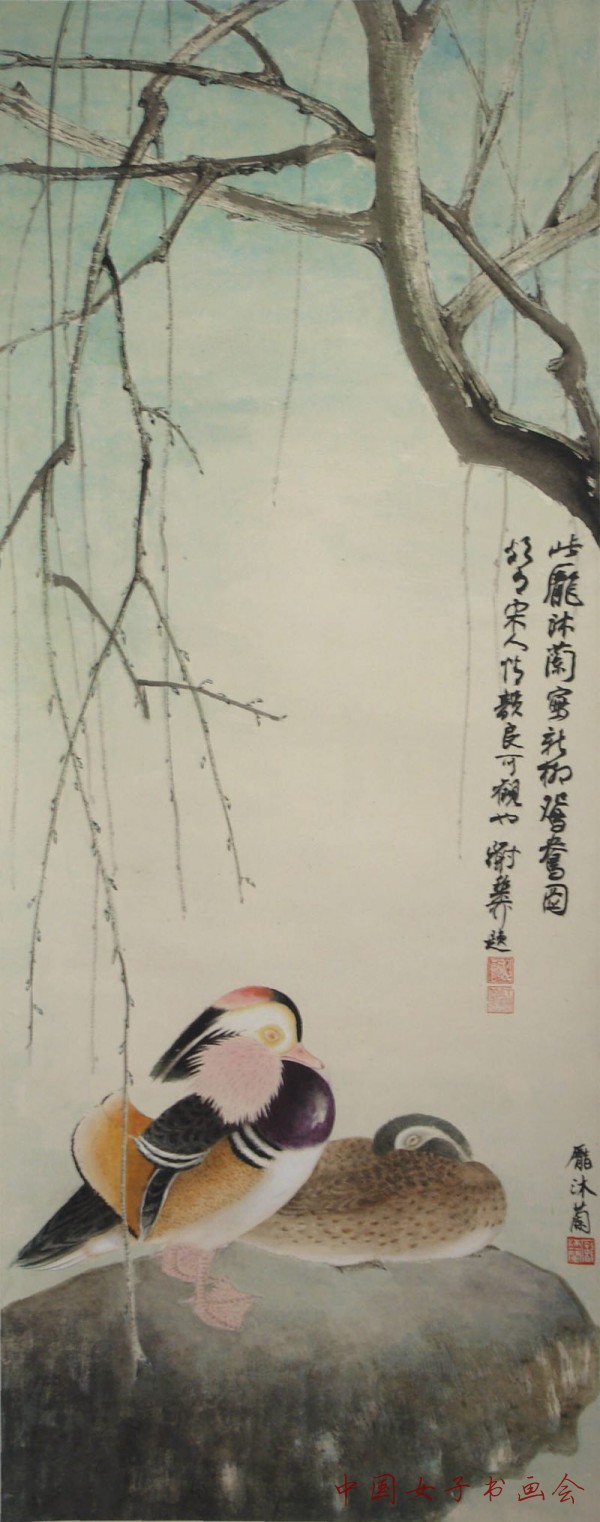 此龐沐蘭寫新柳鴛鴦圖
頗有宋人情韻良可觀也 謝稚題
龐沐蘭
中国女子书画会